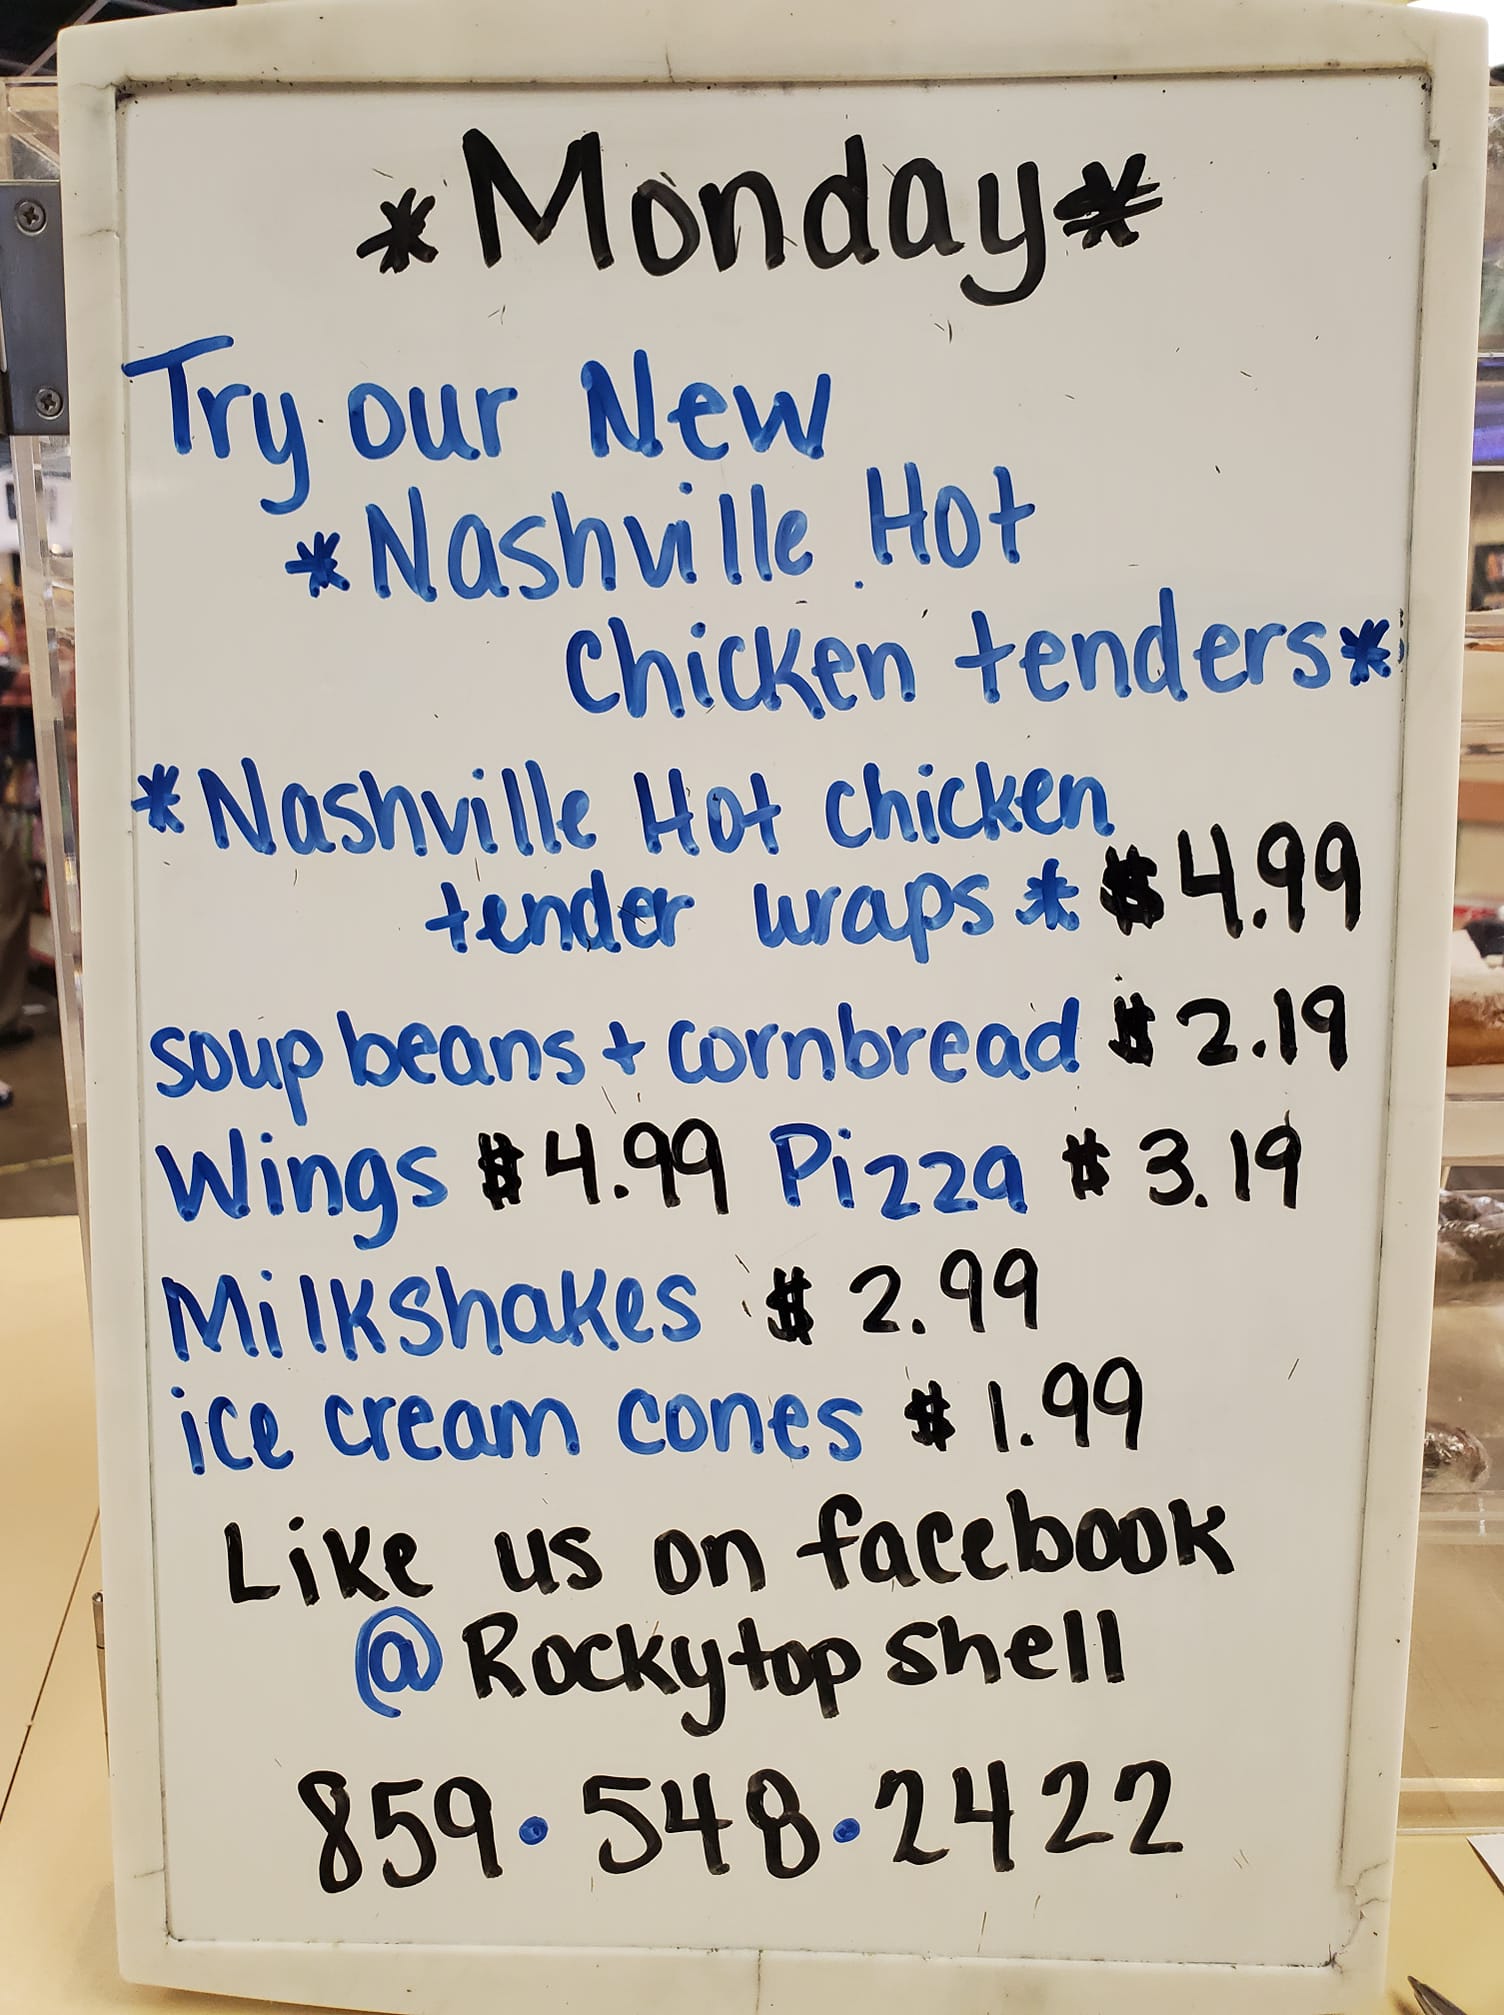 *Monday*
Try our New
*Nashville Hot
Chicken tenders*
*Nashville Hot Chicken
tender wraps * $4.99
soup beans + cornbread $2.19
Wings $4.99 Pizza $3.19
Milkshakes $2.99
ice cream cones $1.99
Like us on facebook
@Rockytop shell
859•548•2422